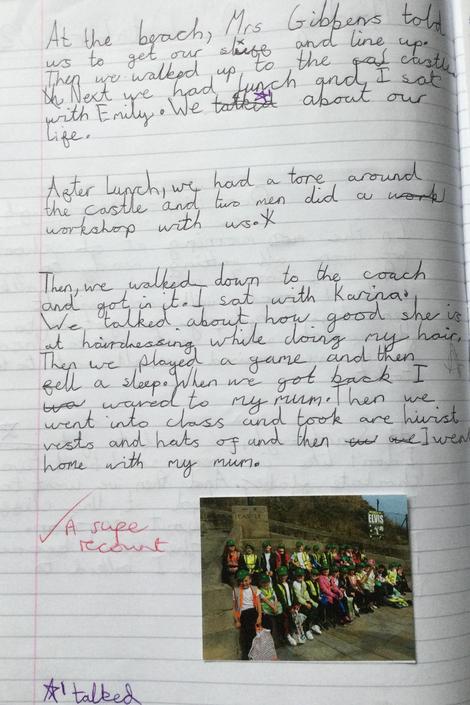 At the beach, Mrs Gibbens told
us to get our and line up.
Then we walked up to the castle
Next we had lunch and I sat
with Emily. We talked about our
life.
After Lunch, we had a tore around
the castle and two men did a work
workshop with us.*
Then, we walked down to the coach
and got in it. I sat with Karina.
We talked about how good she is
at hairdressing while doing my hair.
Then we played a game and then
fell a sleep. When we got back I
waved to my mum. Then we
went into class and took are hivist
vests and hats of and then I went
home with my mum.
ELVIS
✓ A supe
recount
☆1 talked